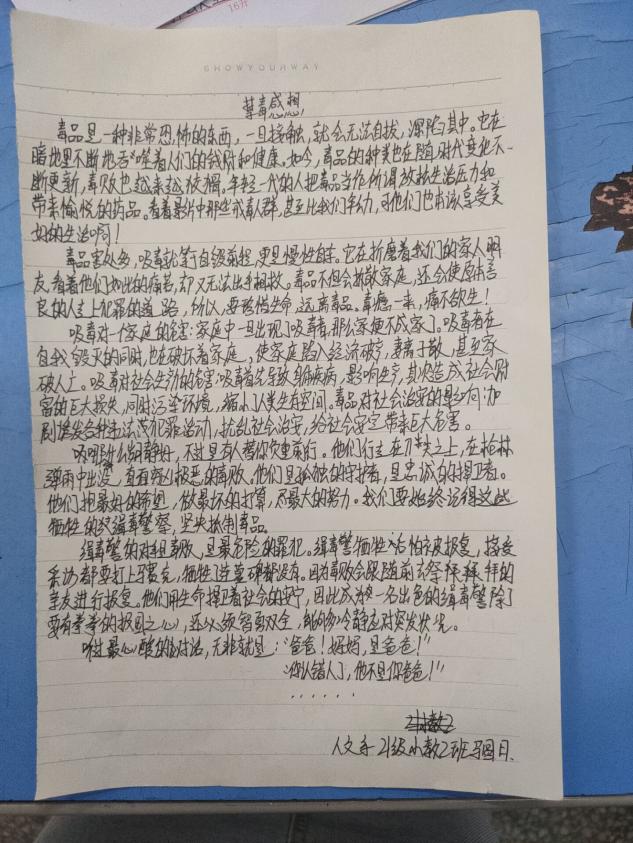 16开
SHOWYOURWAY
禁毒感想
毒品是一种非常恐怖的东西，一旦接触，就会无法自拔，深陷其中。它在
暗地里不断地吞噬着人们的钱财和健康。如今，毒品的种类也在随时代变化不
断更新，毒贩也越来越狡猾，年轻一代的人把毒品当作所谓放松生活压力和
带来愉悦的药品。看着影片中那些戒毒人群，甚至比我们年幼，可他们也本该享受美
好的生活啊！
毒品害处多，吸毒就等于自毁前程，更是慢性自杀。它在折磨着我们的家人朋
友，看着他们如此的痛苦，却又无法出手相救。毒品不但会拆散家庭，还会使原本善
良的人走上犯罪的道路，所以，要珍惜生命，远离毒品。毒瘾一来，痛不欲生！
吸毒对一个家庭的危害：家庭中一旦出现了吸毒者，那么家便不成家了。吸毒者在
自我毁灭的同时，也在破坏着家庭，使家庭陷入经济破产，妻离子散，甚至家
破人亡。吸毒对社会生产的危害：吸毒首先导致身体疾病，影响生产，其次造成社会财
富的巨大损失，同时污染环境，缩小人类生存空间。毒品对社会治安的影响：加
剧诱发各种违法犯罪活动，扰乱社会治安，给社会安定带来巨大危害。
哪有什么岁月静好，不过是有人替你负重前行。他们行走在刀尖之上，在枪林
弹雨中出没，直面穷凶极恶的毒贩。他们是孤独的守护者，是忠诚的捍卫者。
他们把最好的希望，做最坏的打算，尽最大的努力。我们要始终记得这些
牺牲的缉毒警察，坚决抵制毒品。
缉毒警的对手是毒贩，是最危险的罪犯。缉毒警牺牲后怕被报复，接受
采访都要打上马赛克，牺牲了连墓碑都没有。因为毒贩会跟随前去祭拜的
亲友进行报复。他们用生命捍卫着社会的安宁，因此成为一名出色的缉毒警除了
要有拳拳的报国之心，还必须智勇双全，能够冷静应对突发状况。
听过最心酸的对话，无非就是：“爸爸！妈妈，是爸爸！”
“你认错人了，他不是你爸爸！”
......
人文系 21级小教2班 马圆日.